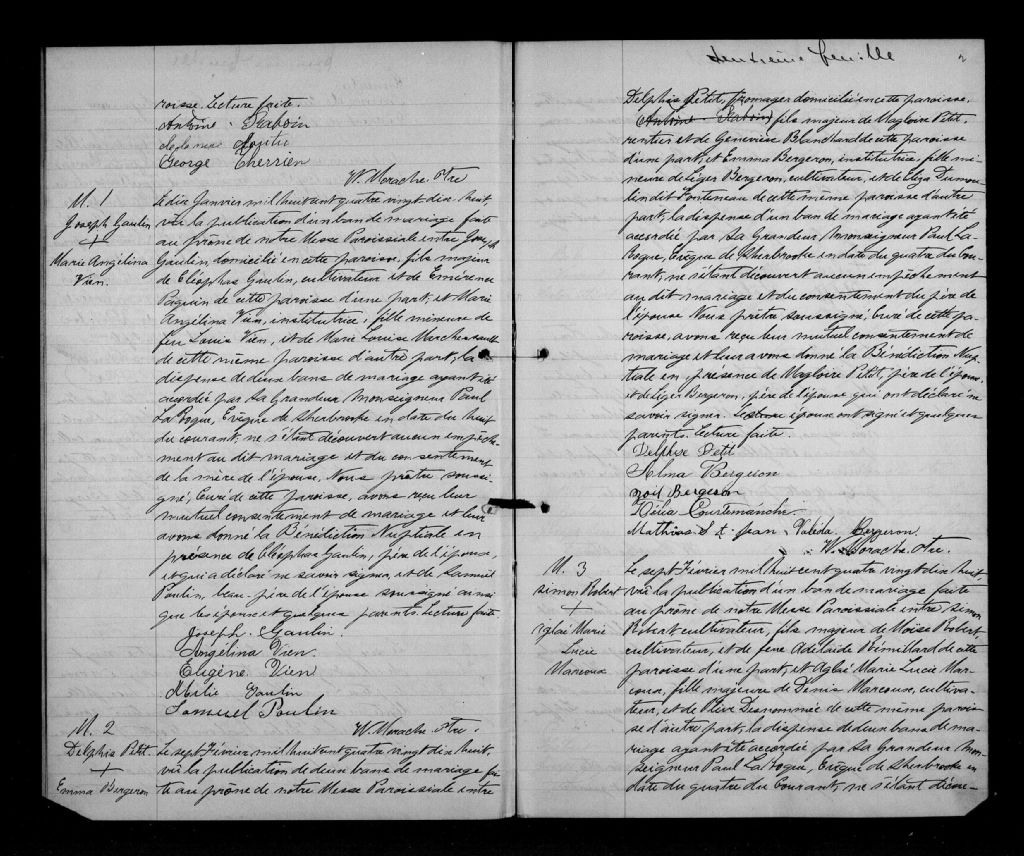 roisse. Lecture faite.
Antoine Raboin
George Therrien
W. Morache. Ptre
M. 1
Joseph Gaulin
+
Marie Angélina
Vien.
Le dix Janvier mil huit cent quatre vingt dix-huit
vû la publication d'un ban de mariage faite
au prône de notre Messe Paroissiale entre Joseph
Gaulin, domicilié en cette paroisse, fils majeur
de Cléophas Gaulin, cultivateur et de Emérence
Paquin de cette paroisse d'une part, et Marie
Angélina Vien, institutrice, fille mineure de
feu Louis Vien, et de Marie Louise Marchesseault
de cette même paroisse d'autre part, la
dispense de deux bans de mariage ayant été
accordée par Sa Grandeur Monseigneur Paul
LaRoque, Evêque de Sherbrooke en date du huit
du courant, ne s'étant découvert aucun empêche-
ment au dit mariage et du consentement
de la mère de l'épouse, Nous prêtre soussi-
gné, Curé de cette paroisse, avons reçu leur
mutuel consentement de mariage et leur
avons donné la Bénédiction Nuptiale en
présence de Cléophas Gaulin, père de l'époux,
et qui a déclaré ne savoir signer, et de Samuel
Poulin, beau-père de l'épouse soussigné ainsi
que les époux et quelques parents. Lecture faite.
Joseph Gaulin.
Angélina Vien
Eugène Vien
Gaulin
Samuel Poulin
W. Morache Ptre.
M. 2
Delphis Petit.
+
Emma Bergeron
Le sept Février mil huit cent quatre vingt dix huit
vû la publication de deux bans de mariage fai-
te au prône de notre Messe Paroissiale entre
deuxième feuille
2
Delphis Petit, fromager domicilié en cette paroisse,
Antoine Raboin fils majeur de Magloire Petit,
rentier et de Geneviève Blanchard de cette paroisse
d'une part, et Emma Bergeron, institutrice, fille mi-
neure de Léger Bergeron, cultivateur, et de Eliza Dumou-
lin dit Fonteneau de cette même paroisse d'autre
part, la dispense d'un ban de mariage ayant été
accordée par Sa Grandeur Monseigneur Paul La-
Roque, Evêque de Sherbrooke en date du quatre du cou-
rant, ne s'étant découvert aucun empêchement
au dit mariage et du consentement du père de
l'épouse Nous prêtre soussigné, Curé de cette pa-
roisse, avons reçu leur mutuel consentement de
mariage et leur avons donné la Bénédiction Nup-
tiale en présence de Magloire Petit, père de l'époux,
et de Léger Bergeron, père de l'épouse qui ont déclaré ne
savoir signer. Les époux ont signé et quelques
parents. Lecture faite.
Delphise Petit
Alma Bergeron
Noël Bergeron
Courtemanche.
Mathias St-Jean Valéda Bergeron
W. Morache. Ptre.
M. 3
Simon Robert
+
Aglaé Marie
Lucie
Marcoux
Le sept Février mil huit cent quatre vingt dix huit,
vû la publication d'un ban de mariage faite
au prône de notre Messe Paroissiale entre Simon
Robert cultivateur, fils majeur de Moïse Robert
cultivateur, et de feue Adelaïde Rémillard de cette
paroisse d'une part, et Aglaé Marie Lucie Mar-
coux, fille majeure de Denis Marcoux, cultiva-
teur, et de Olive Desnommée de cette même parois-
se d'autre part, la dispense de deux bans de ma-
riage ayant été accordée par Sa Grandeur Mon-
seigneur Paul LaRoque, Evêque de Sherbrooke en
date du quatre du Courant, ne s'étant décou-